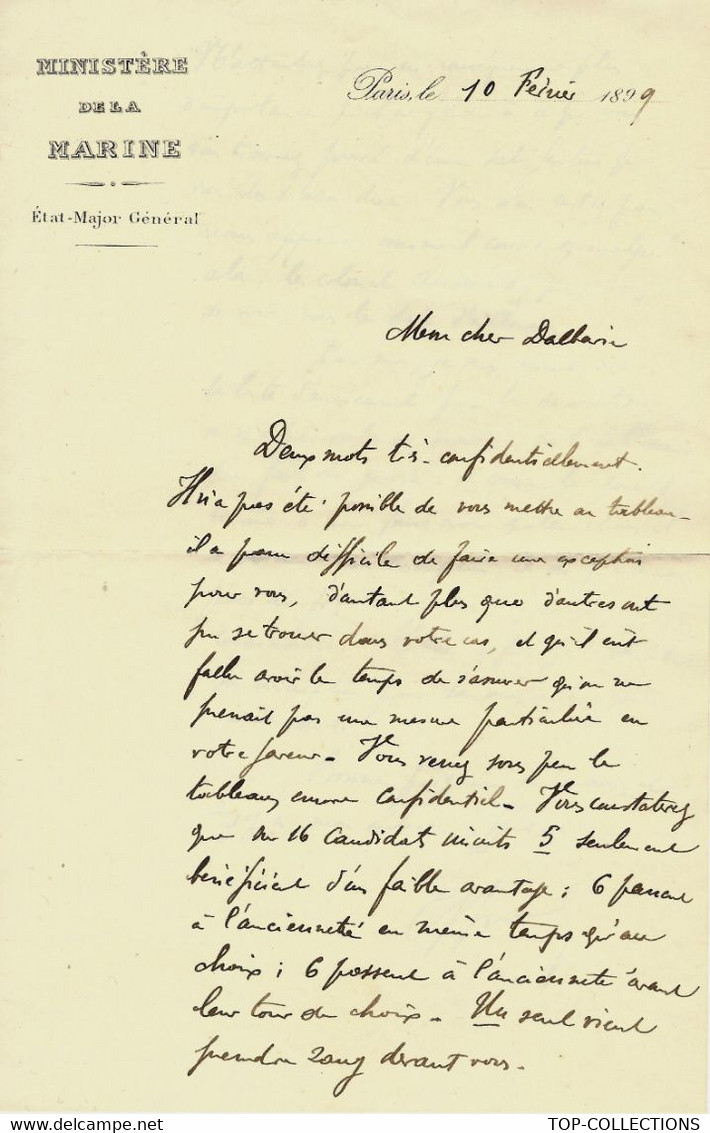 MINISTÈRE
DE LA
MARINE
État-Major Général
Paris, le 10 Février 1899
Mon cher
Deux mots très confidentiellement.
Il n'a pas été possible de vous mettre au tableau -
il a paru difficile de faire une exception
pour vous, d'autant plus que d'autres ont
pu se trouver dans votre cas, et qu'il eût
fallu avoir le temps de s'assurer qu'on ne
prenait pas une mesure particulière en
votre faveur - Vous verrez sous peu le
tableau encore confidentiel - Vous constaterez
que sur 16 candidats inscrits 5 seulement
bénéficient d'un faible avantage ; 6 passent
à l'ancienneté en même temps qu'au
choix ; 6 passent à l'ancienneté avant
leur tour de choix - Un seul vient
prendre rang devant vous.
delcampe.net
TOP-COLLECTIONS